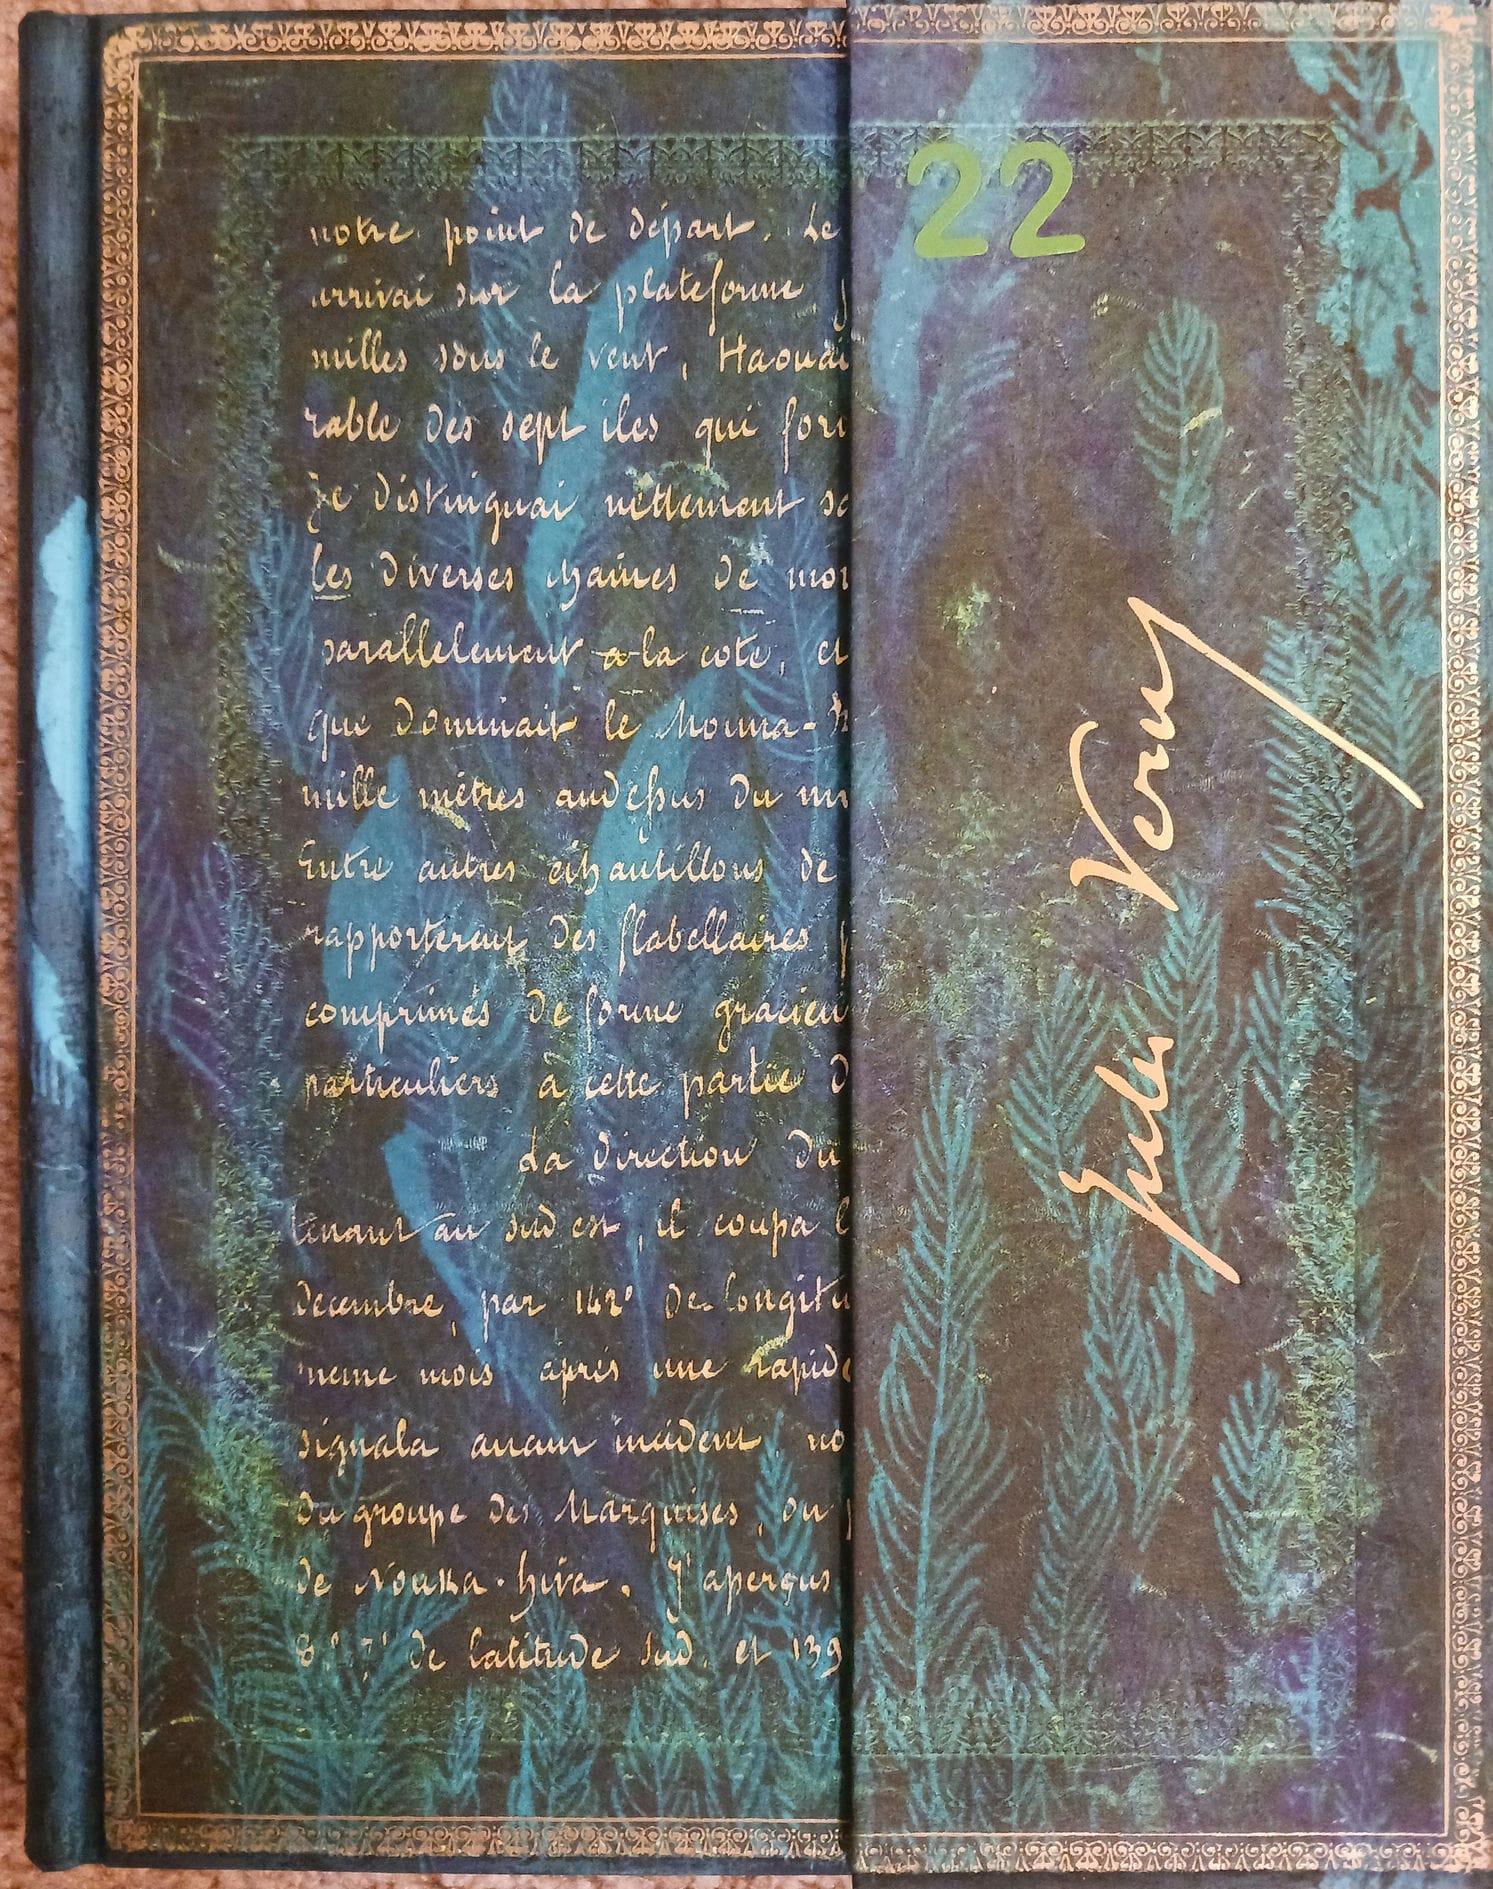 22
notre point de départ. Le
arrivai sur la plateforme
milles sous le vent, Haouai
rable des sept iles qui for
Je distinguai nettement
les diverses chaines de mon
parallelement a la cote, et
que dominait le Mouna-
mille mètres audessus du
Entre autres échantillons de
rapporterent des flabellaires
comprimés de forme gracieu
particuliers à cette partie d
La direction du
tenant au sud est, il coupa l
decembre, par 142° de longitu
meme mois après une rapide
signala aucun incident, no
du groupe des Marquises, ou
de Nouka-hiva. J'aperçus
de latitude sud, et 139
Jules Verne